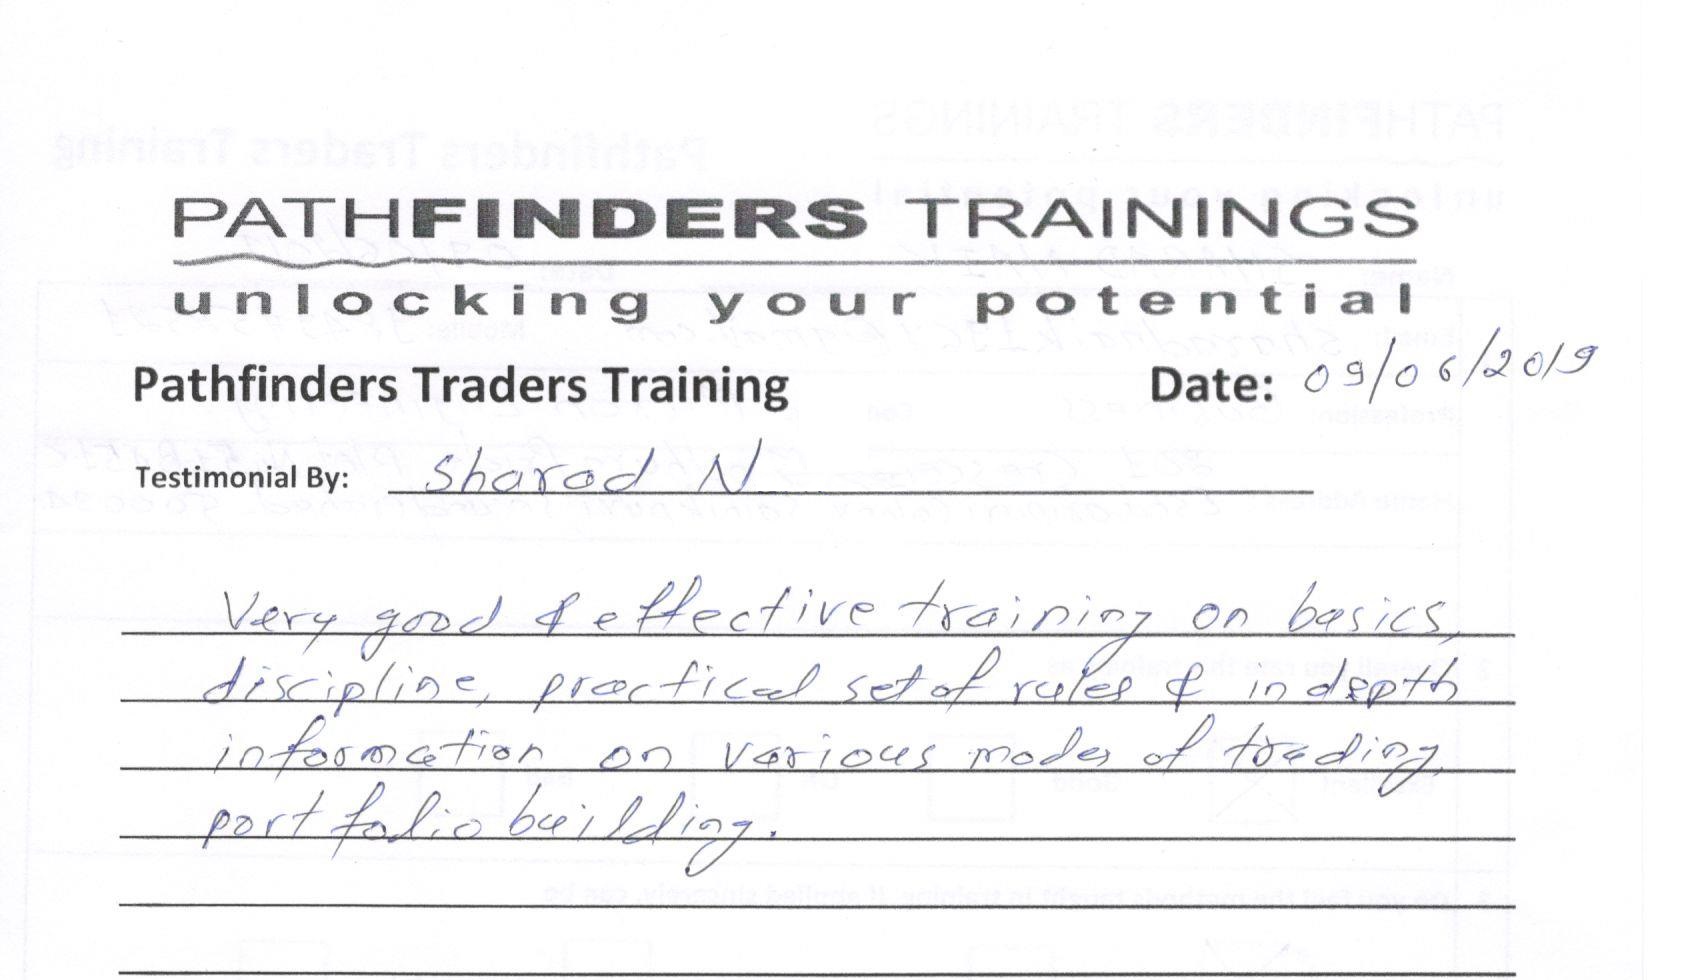 PATHFINDERS TRAININGS
unlocking your potential
Pathfinders Traders Training Date: 09/06/2019
Testimonial By: Sharad N
Very good & effective training on basics,
discipline, practical set of rules & in depth
information on various modes of trading,
portfolio building.